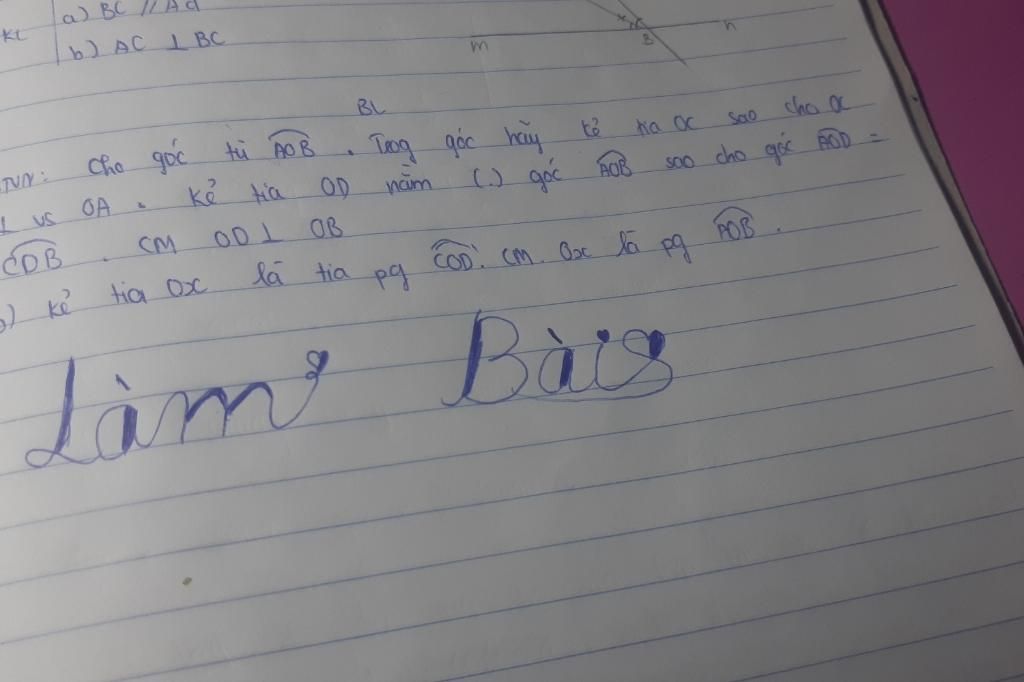 KL a) BC // Ad
b) AC ⊥ BC
m B n
BL
TVN: Cho góc tù AOB. Trog góc hãy kẻ tia OC sao cho OC
⊥ vs OA. Kẻ tia OD nằm (.) góc AOB sao cho góc AOD =
COB. CM OD ⊥ OB
b) Kẻ tia Ox là tia pg COD. CM Ox là pg AOB.
Làm Bài